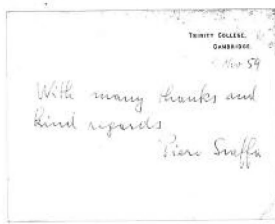 TRINITY COLLEGE,
CAMBRIDGE.
Nov 59
With many thanks and
kind regards
Piero Sraffa